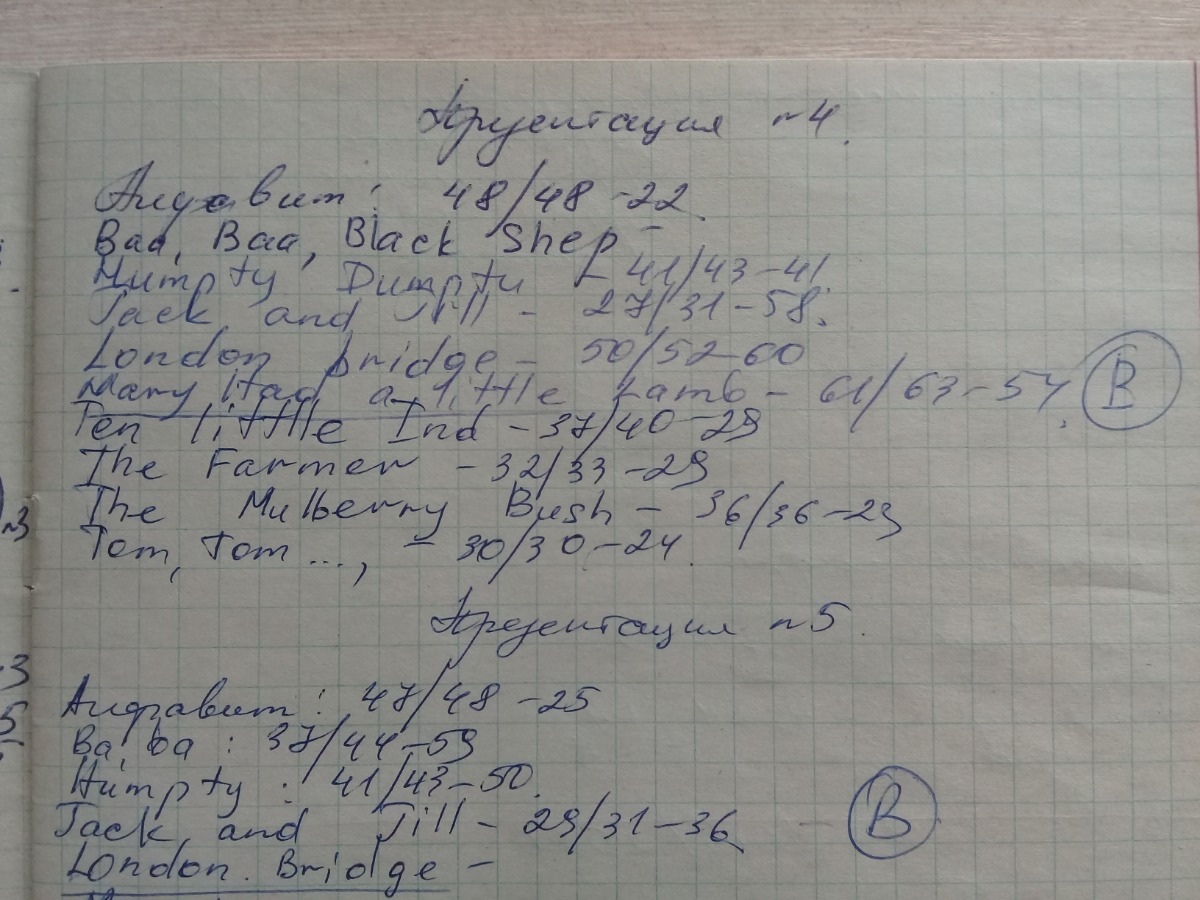 Презентация n4.
Алфавит: 48/48-22.
Baa, Baa, Black Shep -
Humpty Dumpty - 41/43-41
Jack and Jill - 27/31-58.
London bridge - 50/52-60
Mary Had a little Lamb - 61/63-57. B
Ten little Ind - 37/40-29
The Farmer - 32/33-29
The Mulberry Bush - 36/36-29
Tom, Tom ..., - 30/30-24
Презентация n5.
Алфавит: 47/48-25
Ba, ba: 37/44-59
Humpty: 41/43-50.
Jack and Jill - 29/31-36 - B
London. Bridge -